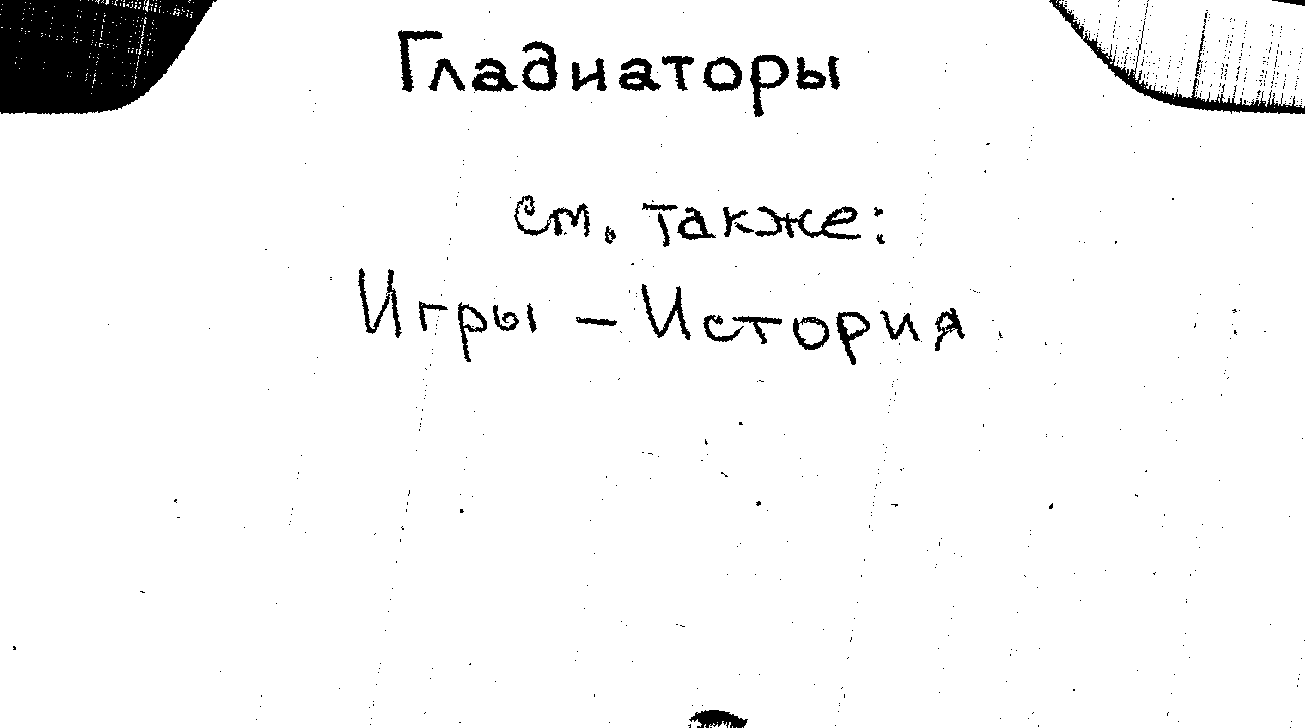 Гладиаторы
см. также:
Игры - История